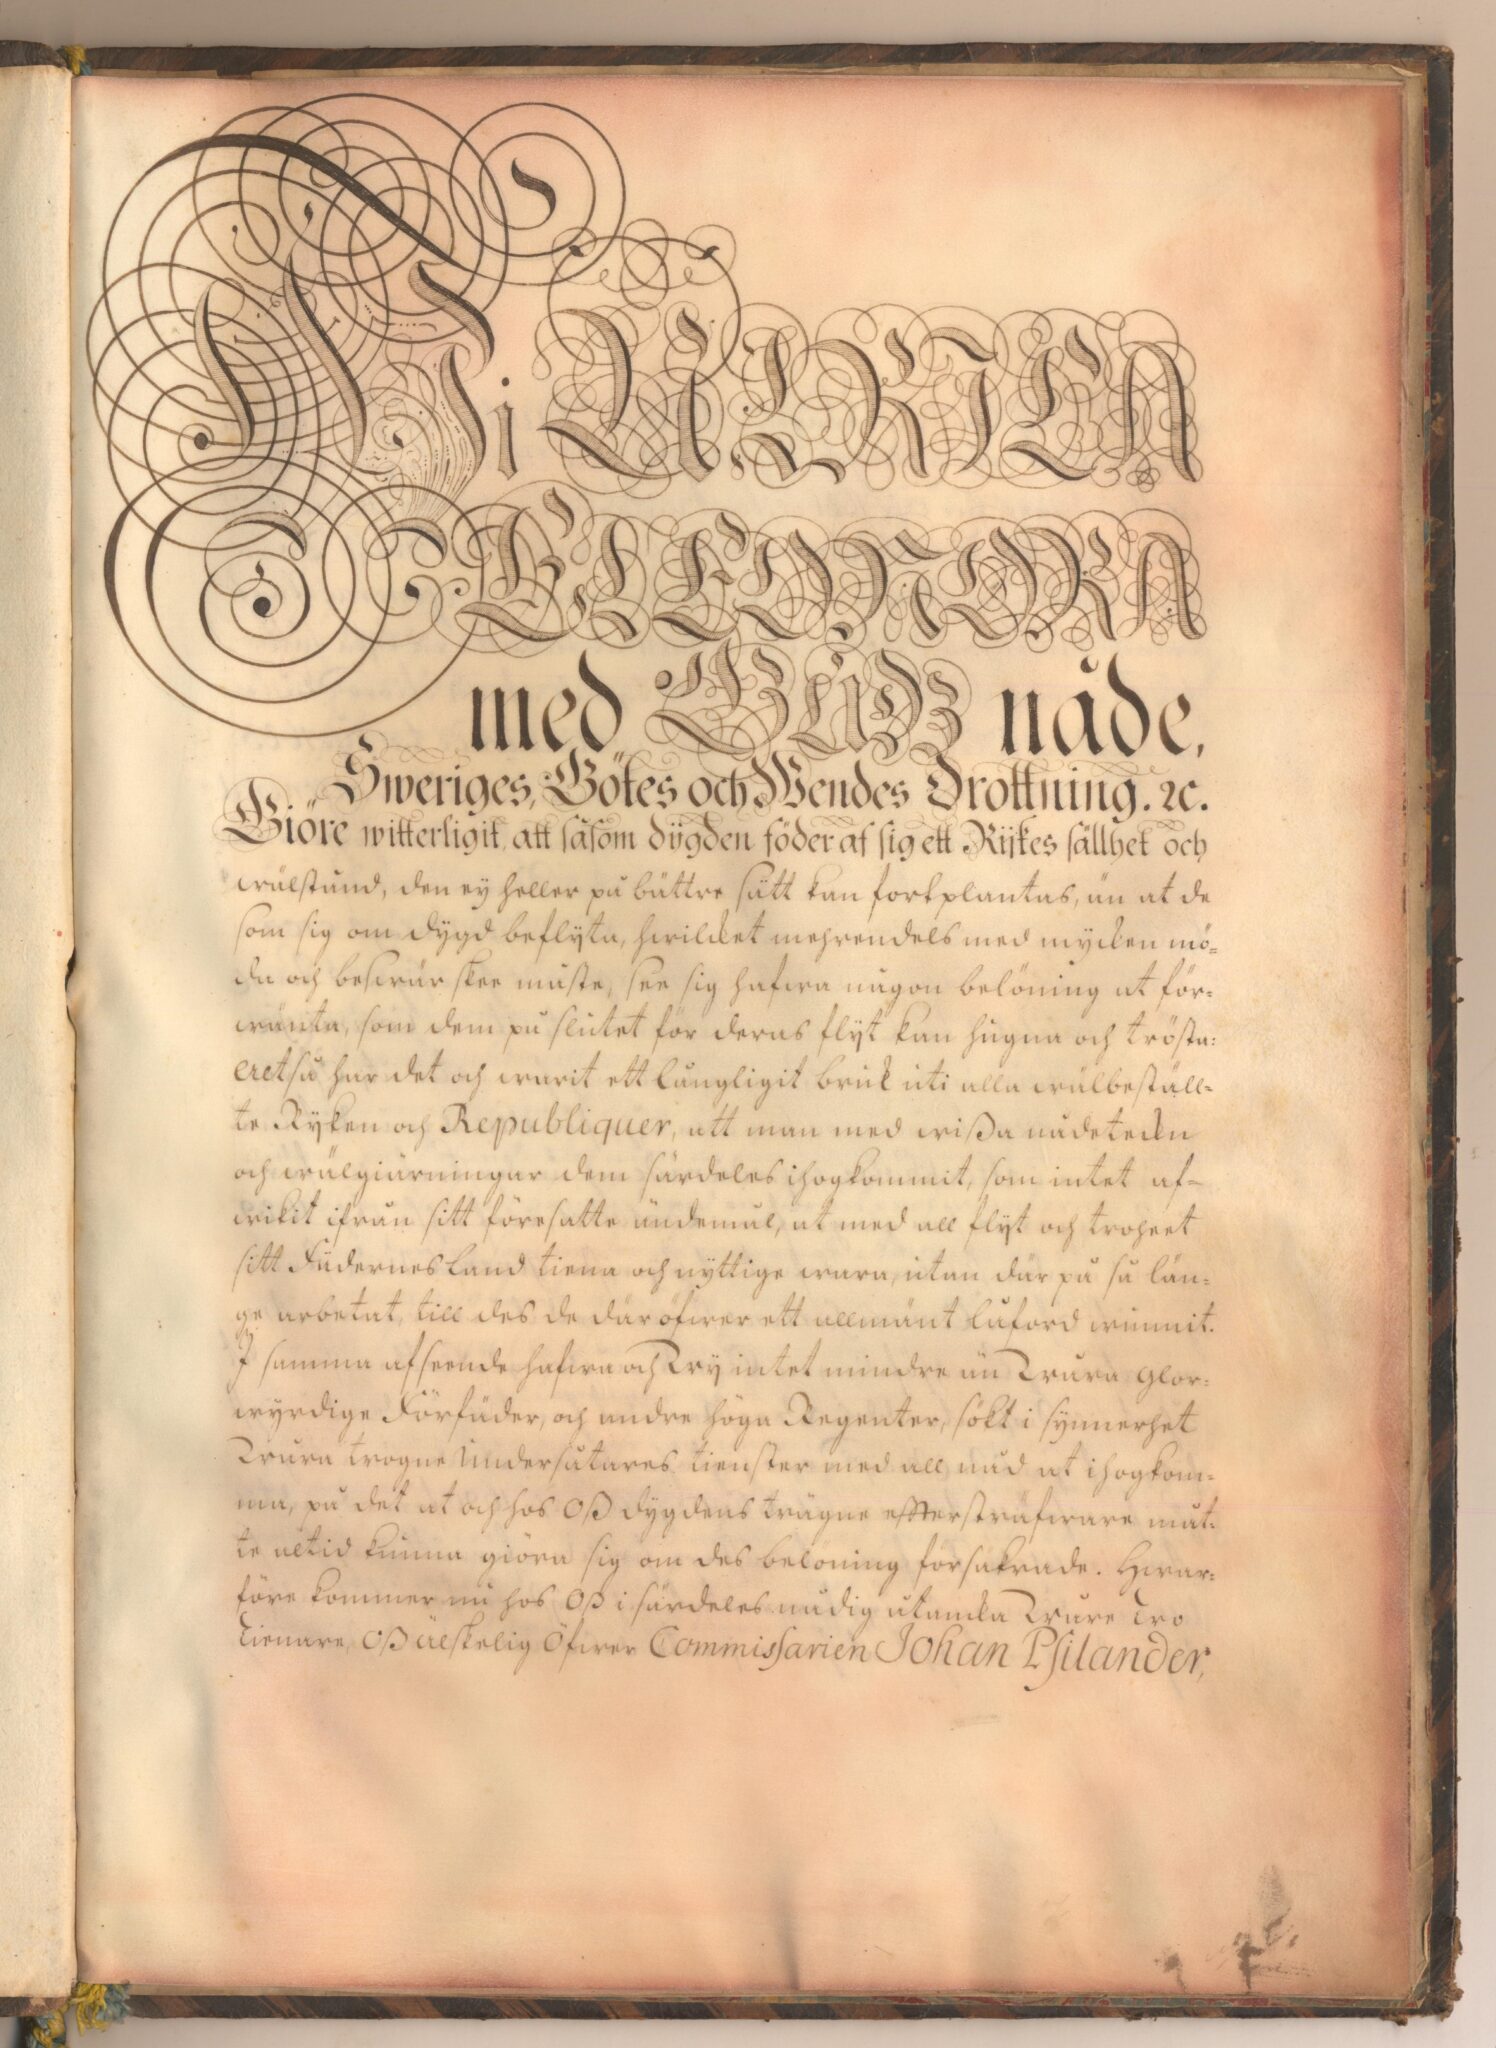 Wi ULRICA
ELEONORA
med GUDZ nåde,
Sweriges, Götes och Wendes Drottning. ꝛc.
Giöre witterligit, att såsom dygden föder af sig ett Rijkes sällhet och
wälstånd, den ey heller på bättre sätt kan fortplantas, än at de
som sig om dygd beflyta, hwilcket mehrendels med mycken mö-
da och beswär skee måste, see sig hafwa någon belöning at för-
wänta, som dem på slutet för deras flyt kan hugna och trösta:
altså har det och warit ett långligit bruk uti alla wälbeställ-
te Ryken och Republiquer, att man med wißa nådetecken
och wälgiärningar dem särdeles ihogkommit, som intet af-
wikit ifrån sitt föresatte ändemål, at med all flyt och troheet
sitt Fädernesland tiena och nyttige wara, utan där på så län-
ge arbetat, till des de däröfwer ett allmänt låford wunnit.
I samma afseende hafwa och Wy intet mindre än Wåra Glor-
wyrdige Förfäder, och andre höga Regenter, sökt i synnerhet
Wåra trogne Undersåtares tienster med all nåd at ihogkom-
ma, på det at och hos Oß dygdens trägne efftersträfware måt-
te altid kunna giöra sig om des belöning försäkrade. Hwar-
före kommer nu hos Oß i särdeles nådig åtancka Wåre Tro
Tienare, Oß älskelig Öfwer Commissarien Johan Psilander,